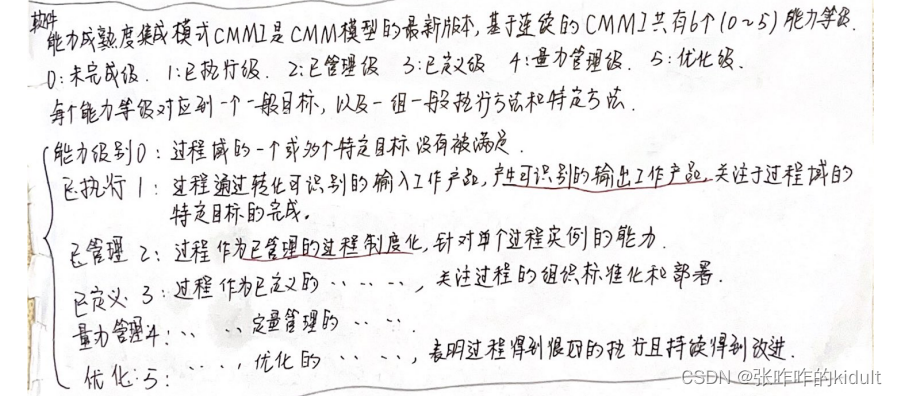 软件
能力成熟度集成模式CMMI是CMM模型的最新版本,基于连续的CMMI共有6个(0~5)能力等级.
0:未完成级. 1:已执行级. 2:已管理级 3:已定义级 4:量力管理级. 5:优化级.
每个能力等级对应到一个一般目标,以及一组一般执行方法和特定方法.
能力级别0:过程域的一个或多个特定目标没有被满足.
已执行1:过程通过转化可识别的输入工作产品,产生可识别的输出工作产品,关注于过程域的
特定目标的完成。
已管理2:过程作为已管理的过程制度化,针对单个过程实例的能力.
已定义.3:过程作为已定义的‥‥‥,关注过程的组织标准化和部署.
量力管理4:‥‥定量管理的‥‥.
优化:5:‥‥,优化的‥‥‥,表明过程得到很好的执行且持续得到改进.
CSDN @张咋咋的kidult